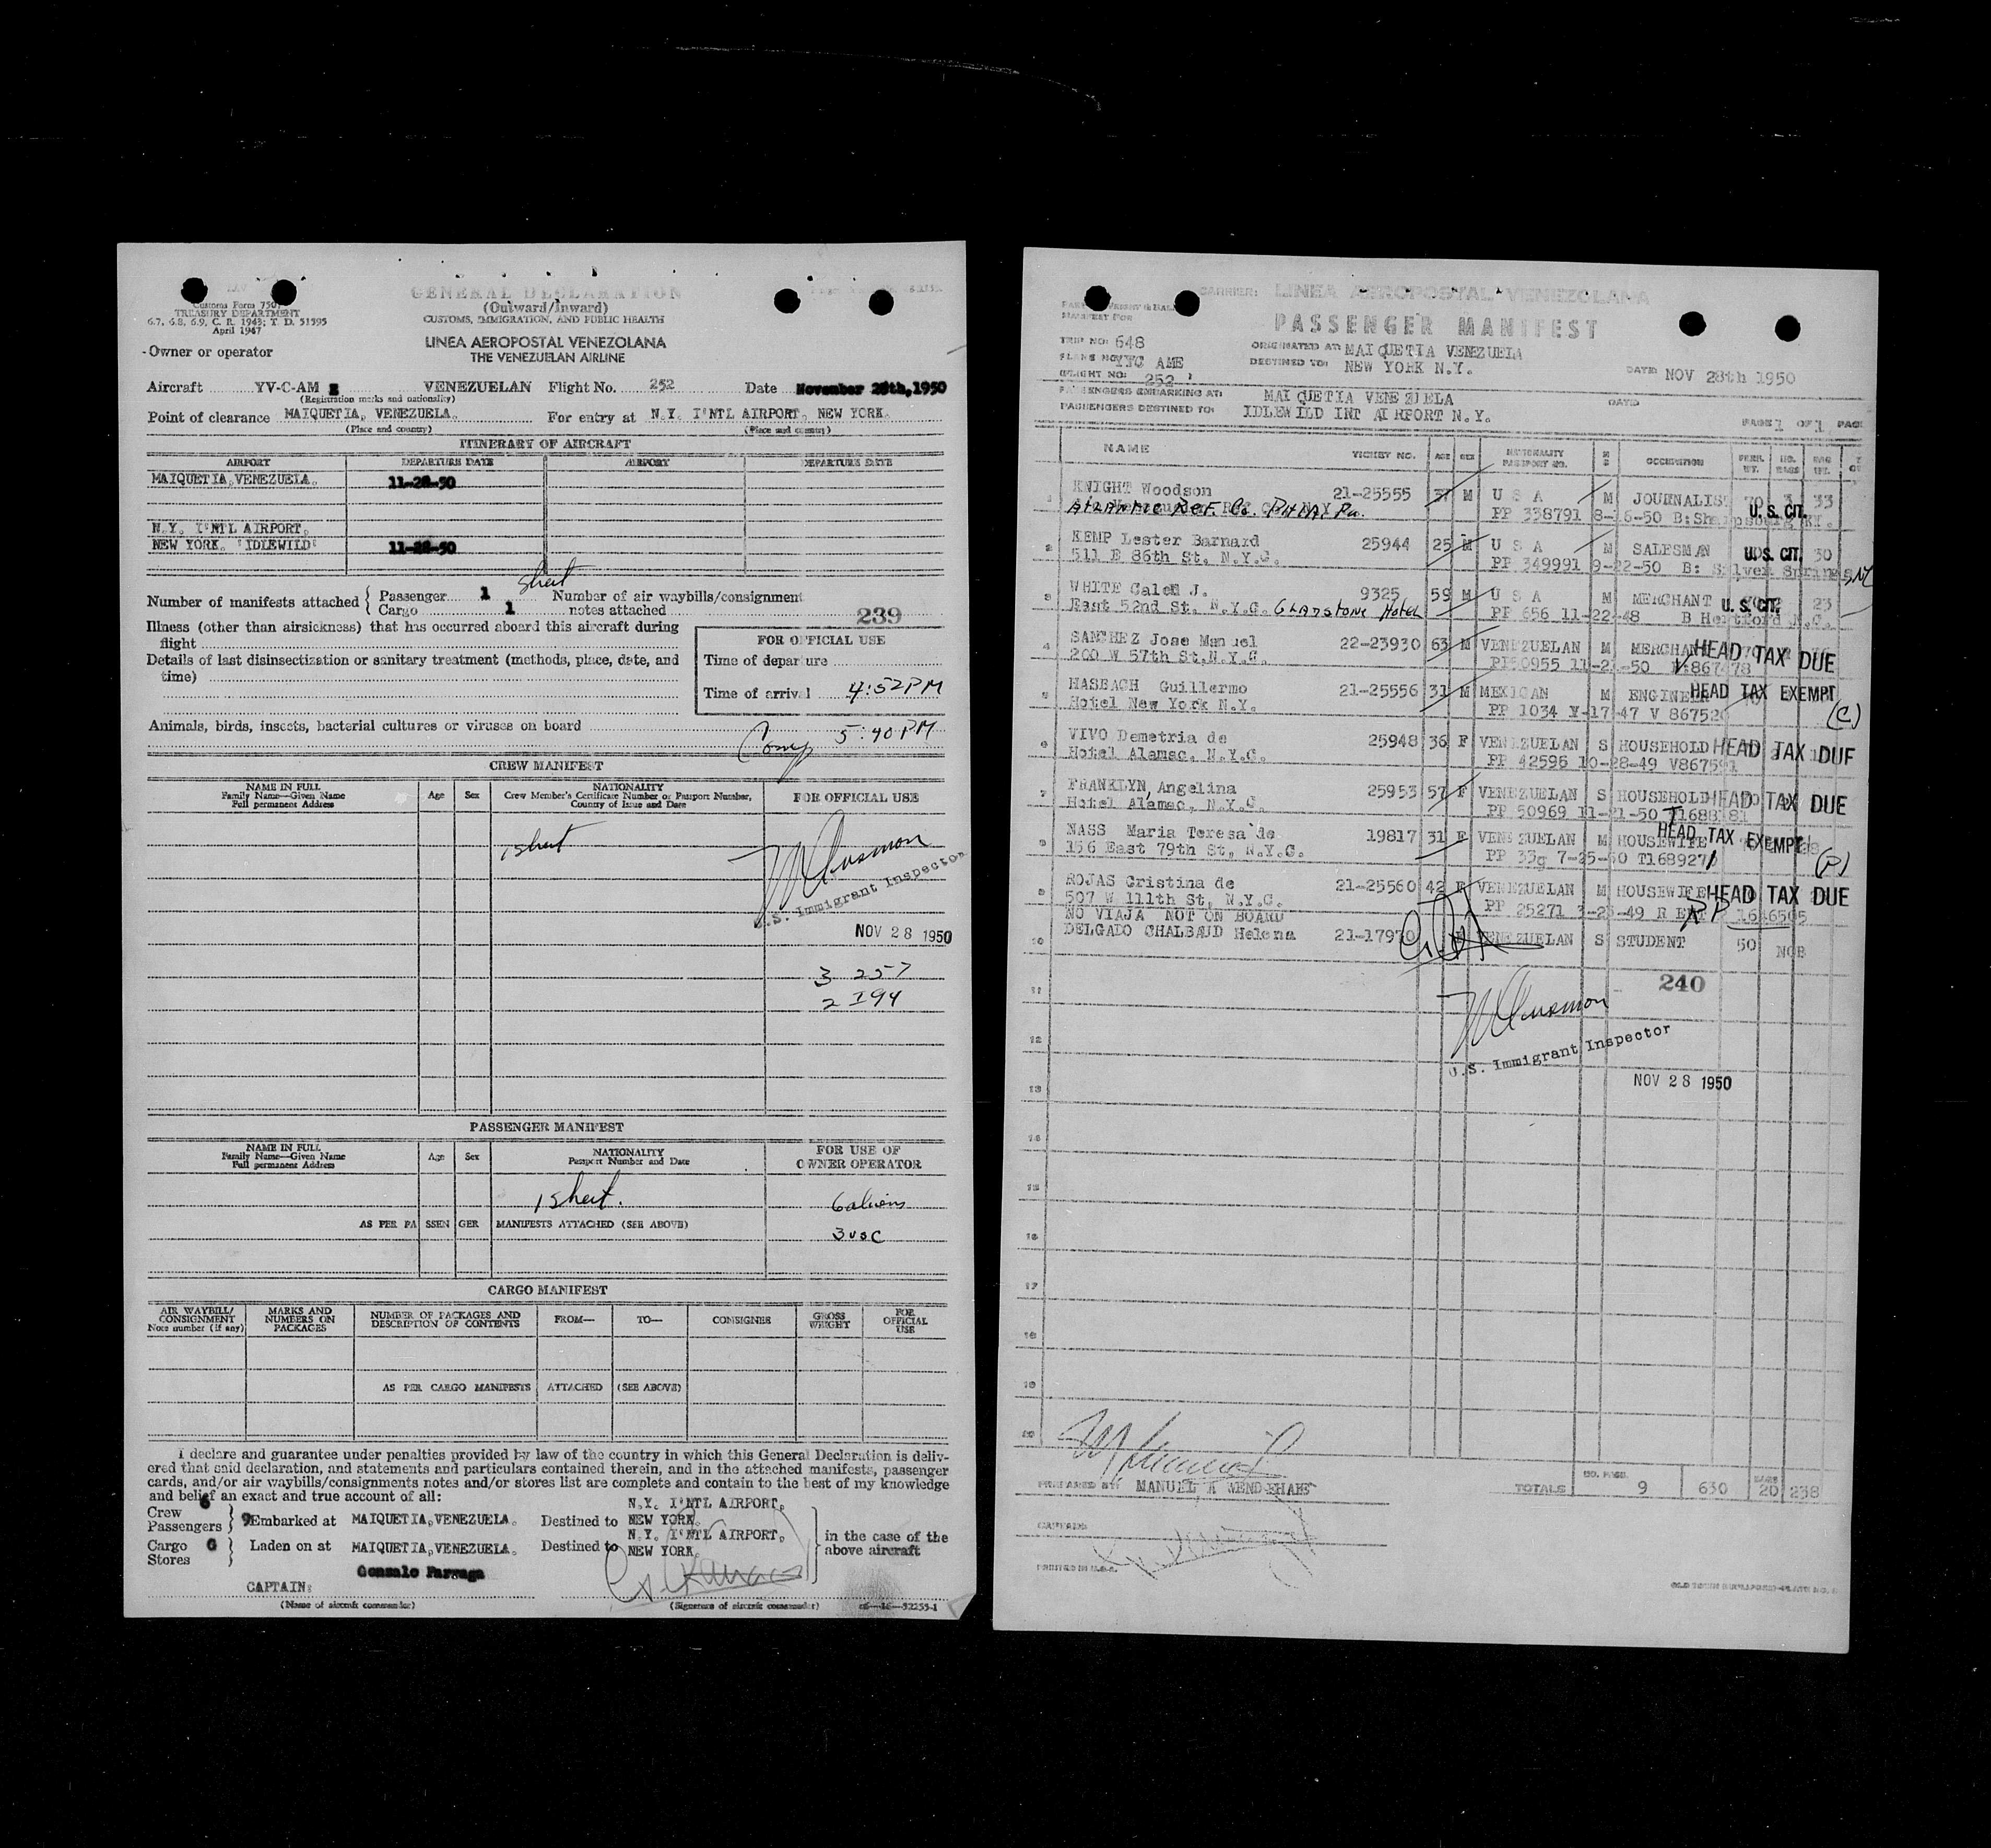 Customs Form 7507
TREASURY DEPARTMENT
6.7, 6.8, 6.9, C. R. 1943; T. D. 51595
April 1947
GENERAL DECLARATION
(Outward/Inward)
CUSTOMS, IMMIGRATION, AND PUBLIC HEALTH
LINEA AEROPOSTAL VENEZOLANA
THE VENEZUELAN AIRLINE
Owner or operator
Aircraft YV-C-AM E VENEZUELAN Flight No. 252 Date November 28th, 1950
(Registration marks and nationality)
Point of clearance MAIQUETIA, VENEZUELA. For entry at N.Y. I'NTL AIRPORT, NEW YORK.
(Place and country) (Place and country)
ITINERARY OF AIRCRAFT
AIRPORT DEPARTURE DATE AIRPORT DEPARTURE DATE
MAIQUETIA, VENEZUELA. 11-28-50
N.Y. I'NTL AIRPORT,
NEW YORK. 'IDLEWILD' 11-28-50
Number of manifests attached { Passenger 1 sheet Number of air waybills/consignment
Cargo 1 notes attached
239
Illness (other than airsickness) that has occurred aboard this aircraft during
flight
FOR OFFICIAL USE
Details of last disinsectization or sanitary treatment (methods, place, date, and
time)
Time of departure
Time of arrival 4:52 PM
Animals, birds, insects, bacterial cultures or viruses on board
Comp 5:40 PM
CREW MANIFEST
NAME IN FULL
Family Name—Given Name
Full permanent Address
Age Sex
NATIONALITY
Crew Member's Certificate Number or Passport Number,
Country of Issue and Date
FOR OFFICIAL USE
1 sheet
U.S. Immigrant Inspector
NOV 28 1950
3 257
2 I94
PASSENGER MANIFEST
NAME IN FULL
Family Name—Given Name
Full permanent Address
Age Sex
NATIONALITY
Passport Number and Date
FOR USE OF
OWNER OPERATOR
1 sheet.
6 aliens
AS PER PASSENGER MANIFESTS ATTACHED (SEE ABOVE)
3 USC
CARGO MANIFEST
AIR WAYBILL/
CONSIGNMENT
Note number (if any)
MARKS AND
NUMBERS ON
PACKAGES
NUMBER OF PACKAGES AND
DESCRIPTION OF CONTENTS
FROM— TO— CONSIGNEE
GROSS
WEIGHT
FOR
OFFICIAL
USE
AS PER CARGO MANIFESTS ATTACHED (SEE ABOVE)
I declare and guarantee under penalties provided by law of the country in which this General Declaration is deliv-
ered that said declaration, and statements and particulars contained therein, and in the attached manifests, passenger
cards, and/or air waybills/consignments notes and/or stores list are complete and contain to the best of my knowledge
and belief an exact and true account of all:
N.Y. I'NTL AIRPORT,
Crew 6
Passengers 9 } Embarked at MAIQUETIA, VENEZUELA. Destined to NEW YORK.
N.Y. I'NTL AIRPORT,
Cargo
Stores } Laden on at MAIQUETIA, VENEZUELA. Destined to NEW YORK.
in the case of the
above aircraft
Gonzalo Parraga
CAPTAIN:
(Name of aircraft commander) (Signature of aircraft commander) c6—16—52255-1
CARRIER: LINEA AEROPOSTAL VENEZOLANA
MANIFEST FOR
PASSENGER MANIFEST
TRIP NO: 648
PLANE NO: YYC AME
FLIGHT NO: 252
ORIGINATED AT: MAIQUETIA VENEZUELA
DESTINED TO: NEW YORK N.Y.
DATE: NOV 28th 1950
PASSENGERS EMBARKING AT: MAIQUETIA VENEZUELA DATE:
PASSENGERS DESTINED TO: IDLEWILD INT AIRPORT N.Y.
PAGE 1 OF 1 PAGE
NAME TICKET NO. AGE SEX NATIONALITY PASSPORT NO. M S OCCUPATION PERS. WT. NO. BAGS BAG WT.
1 KNIGHT Woodson 21-25555 37 M U S A M JOURNALIST 70 3 33
Atlantic Ref. Co. Phila, Pa. PP 338791 8-16-50 B:Sharpsberg KY. U.S. CIT.
2 KEMP Lester Barnard 25944 25 M U S A M SALESMAN U.S. CIT. 30
511 E 86th St, N.Y.C. PP 349991 9-22-50 B: Silver Springs, NY
3 WHITE Caleb J. 9325 59 M U S A M MERCHANT U.S. CIT. 23
East 52nd St, N.Y.C. GLADSTONE HOTEL PP 656 11-22-48 B Hertford N.C.
4 SANCHEZ Jose Manuel 22-23930 63 M VENEZUELAN M MERCHANT HEAD TAX DUE
200 W 57th St, N.Y.C. PP50955 11-21-50 V:867478
5 HASBACH Guillermo 21-25556 31 M MEXICAN M ENGINEER HEAD TAX EXEMPT
Hotel New York N.Y. PP 1034 Y-17-47 V 867520 (C)
6 VIVO Demetria de 25948 36 F VENEZUELAN S HOUSEHOLD HEAD TAX DUE
Hotel Alamac, N.Y.C. PP 42596 10-28-49 V867591
7 FRANKLYN Angelina 25953 57 F VENEZUELAN S HOUSEHOLD HEAD TAX DUE
Hotel Alamac, N.Y.C. PP 50969 11-21-50 T1688181
8 NASS Maria Teresa de 19817 31 F VENEZUELAN M HOUSEWIFE HEAD TAX EXEMPT
156 East 79th St, N.Y.C. PP 33g 7-25-50 T168927 (P)
9 ROJAS Cristina de 21-25560 42 F VENEZUELAN M HOUSEWIFE HEAD TAX DUE
507 W 111th St, N.Y.C. PP 25271 3-23-49 R ENT RP 1646505
NO VIAJA NOT ON BOARD
10 DELGADO CHALBAUD Helena 21-17970 F VENEZUELAN S STUDENT 50 NOB
240
11
U.S. Immigrant Inspector
12
NOV 28 1950
13
14
15
16
17
18
19
20
PREPARED BY: MANUEL A WENDEHAKE
TOTALS NO. PASS. 9 630 BAGS 20 238
CAPTAIN:
PRINTED IN U.S.A.